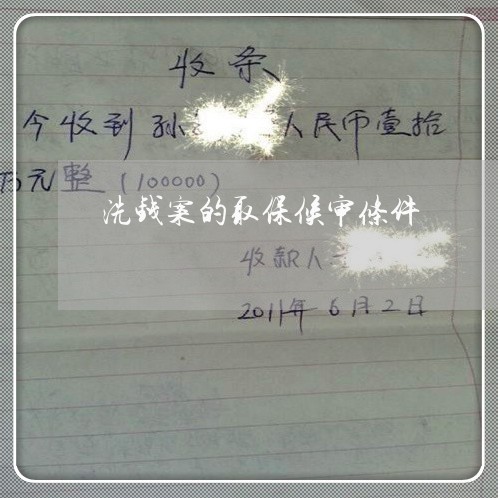 收条
今收到孙 人民币壹拾
万元整(100000)
洗钱案的取保候审条件
收款人
2011年6月2日